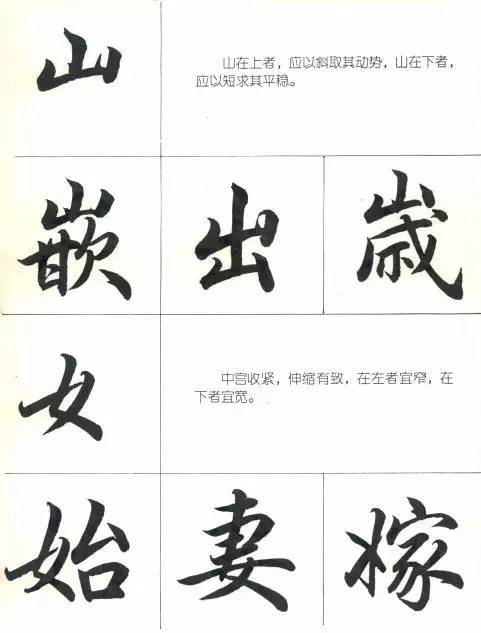 山
山在上者，应以斜取其动势，山在下者，
应以短求其平稳。
嵌 出 歳
女
中宫收紧，伸缩有致，在左者宜窄，在
下者宜宽。
始 妻 嫁